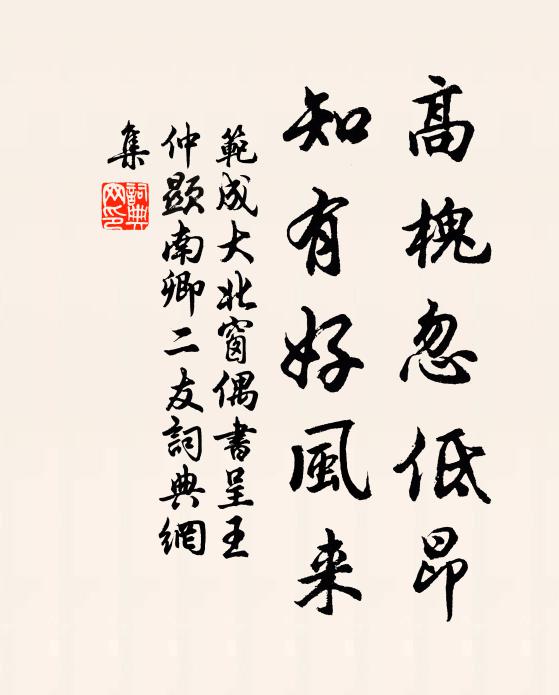 高槐忽低昂
知有好風来
範成大北窗偶書呈王
仲顯南卿二友詞典網
集
詞典
网印